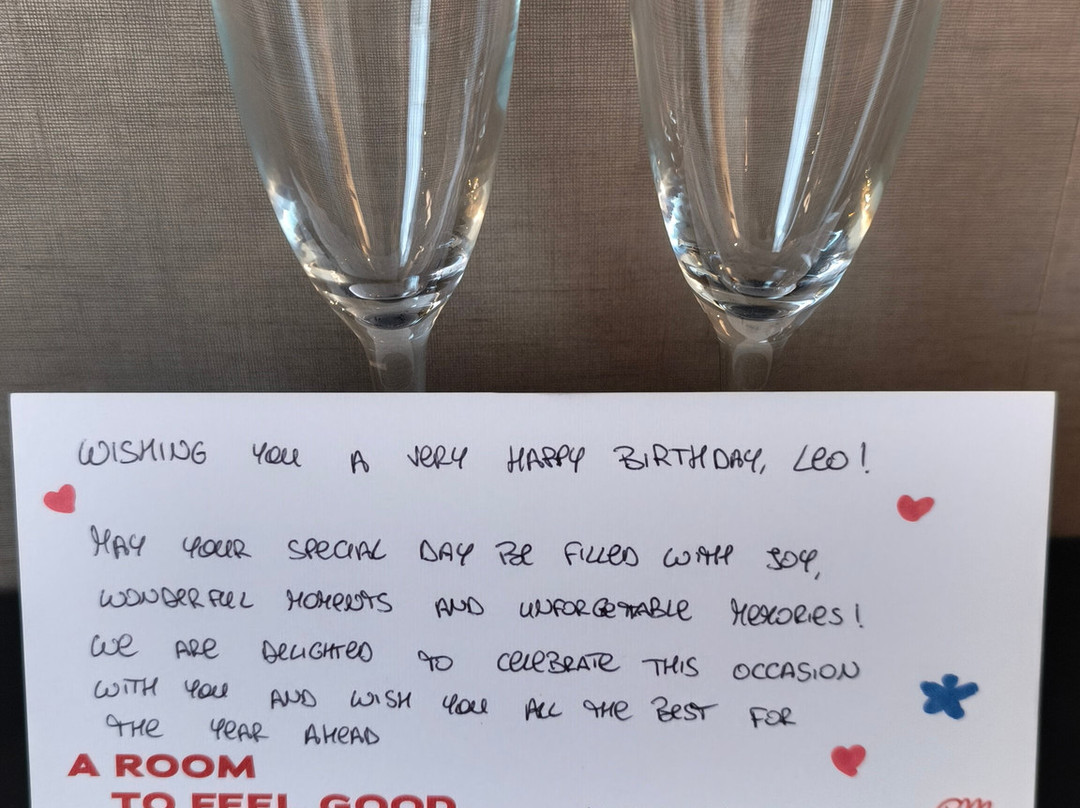 WISHING YOU A VERY HAPPY BIRTHDAY, LEO!
MAY YOUR SPECIAL DAY BE FILLED WITH JOY,
WONDERFULL MOMENTS AND UNFORGETTABLE MEMORIES!
WE ARE DELIGHTED TO CELEBRATE THIS OCCASION
WITH YOU AND WISH YOU ALL THE BEST FOR
THE YEAR AHEAD
A ROOM
TO FEEL GOOD